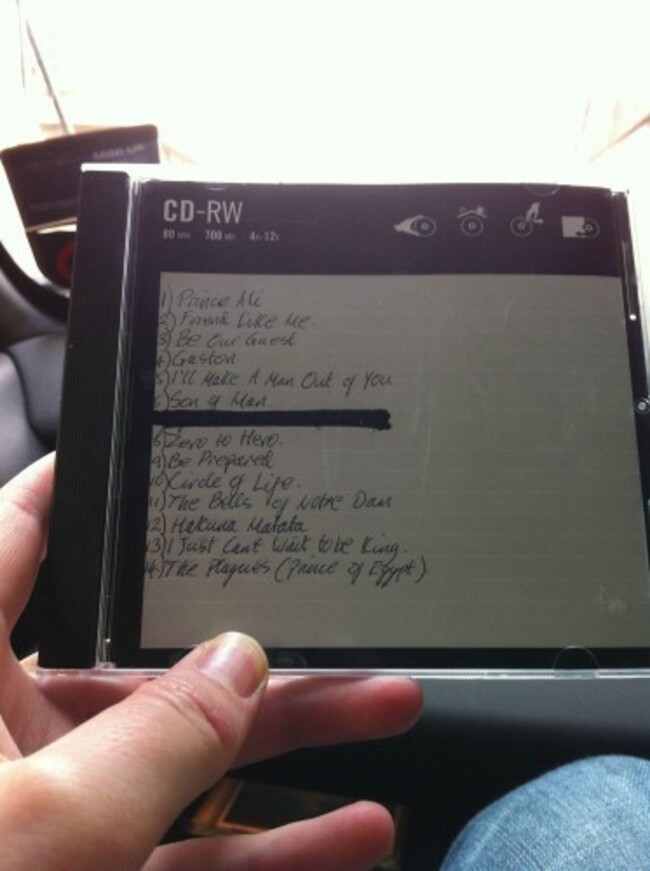 CD-RW
80 MIN 700 MB 4x-12x
1) Prince Ali
2) Friend Like Me.
3) Be Our Guest
4) Gaston
5) I'll Make A Man Out of You.
6) Son of Man
8) Zero to Hero.
9) Be Prepared
10) Circle of Life.
11) The Bells of Notre Dam
12) Hakuna Matata
13) I Just Cant Wait to be King.
14) The Plagues (Prince of Egypt)